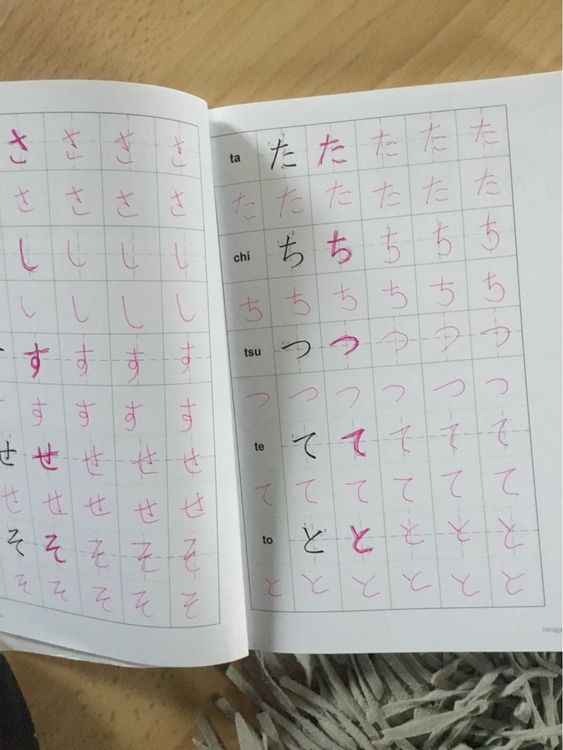 さ さ さ さ
さ さ さ さ
し し し し
し し し し
す す す す
す す す す
せ せ せ せ せ
せ せ せ せ せ
そ そ そ そ そ
そ そ そ そ そ
ta た た た た た
た た た た た た
chi ち ち ち ち ち
ち ち ち ち ち ち
tsu つ つ つ つ つ
つ つ つ つ つ つ
te て て て て て
て て て て て て
to と と と と と
と と と と と と